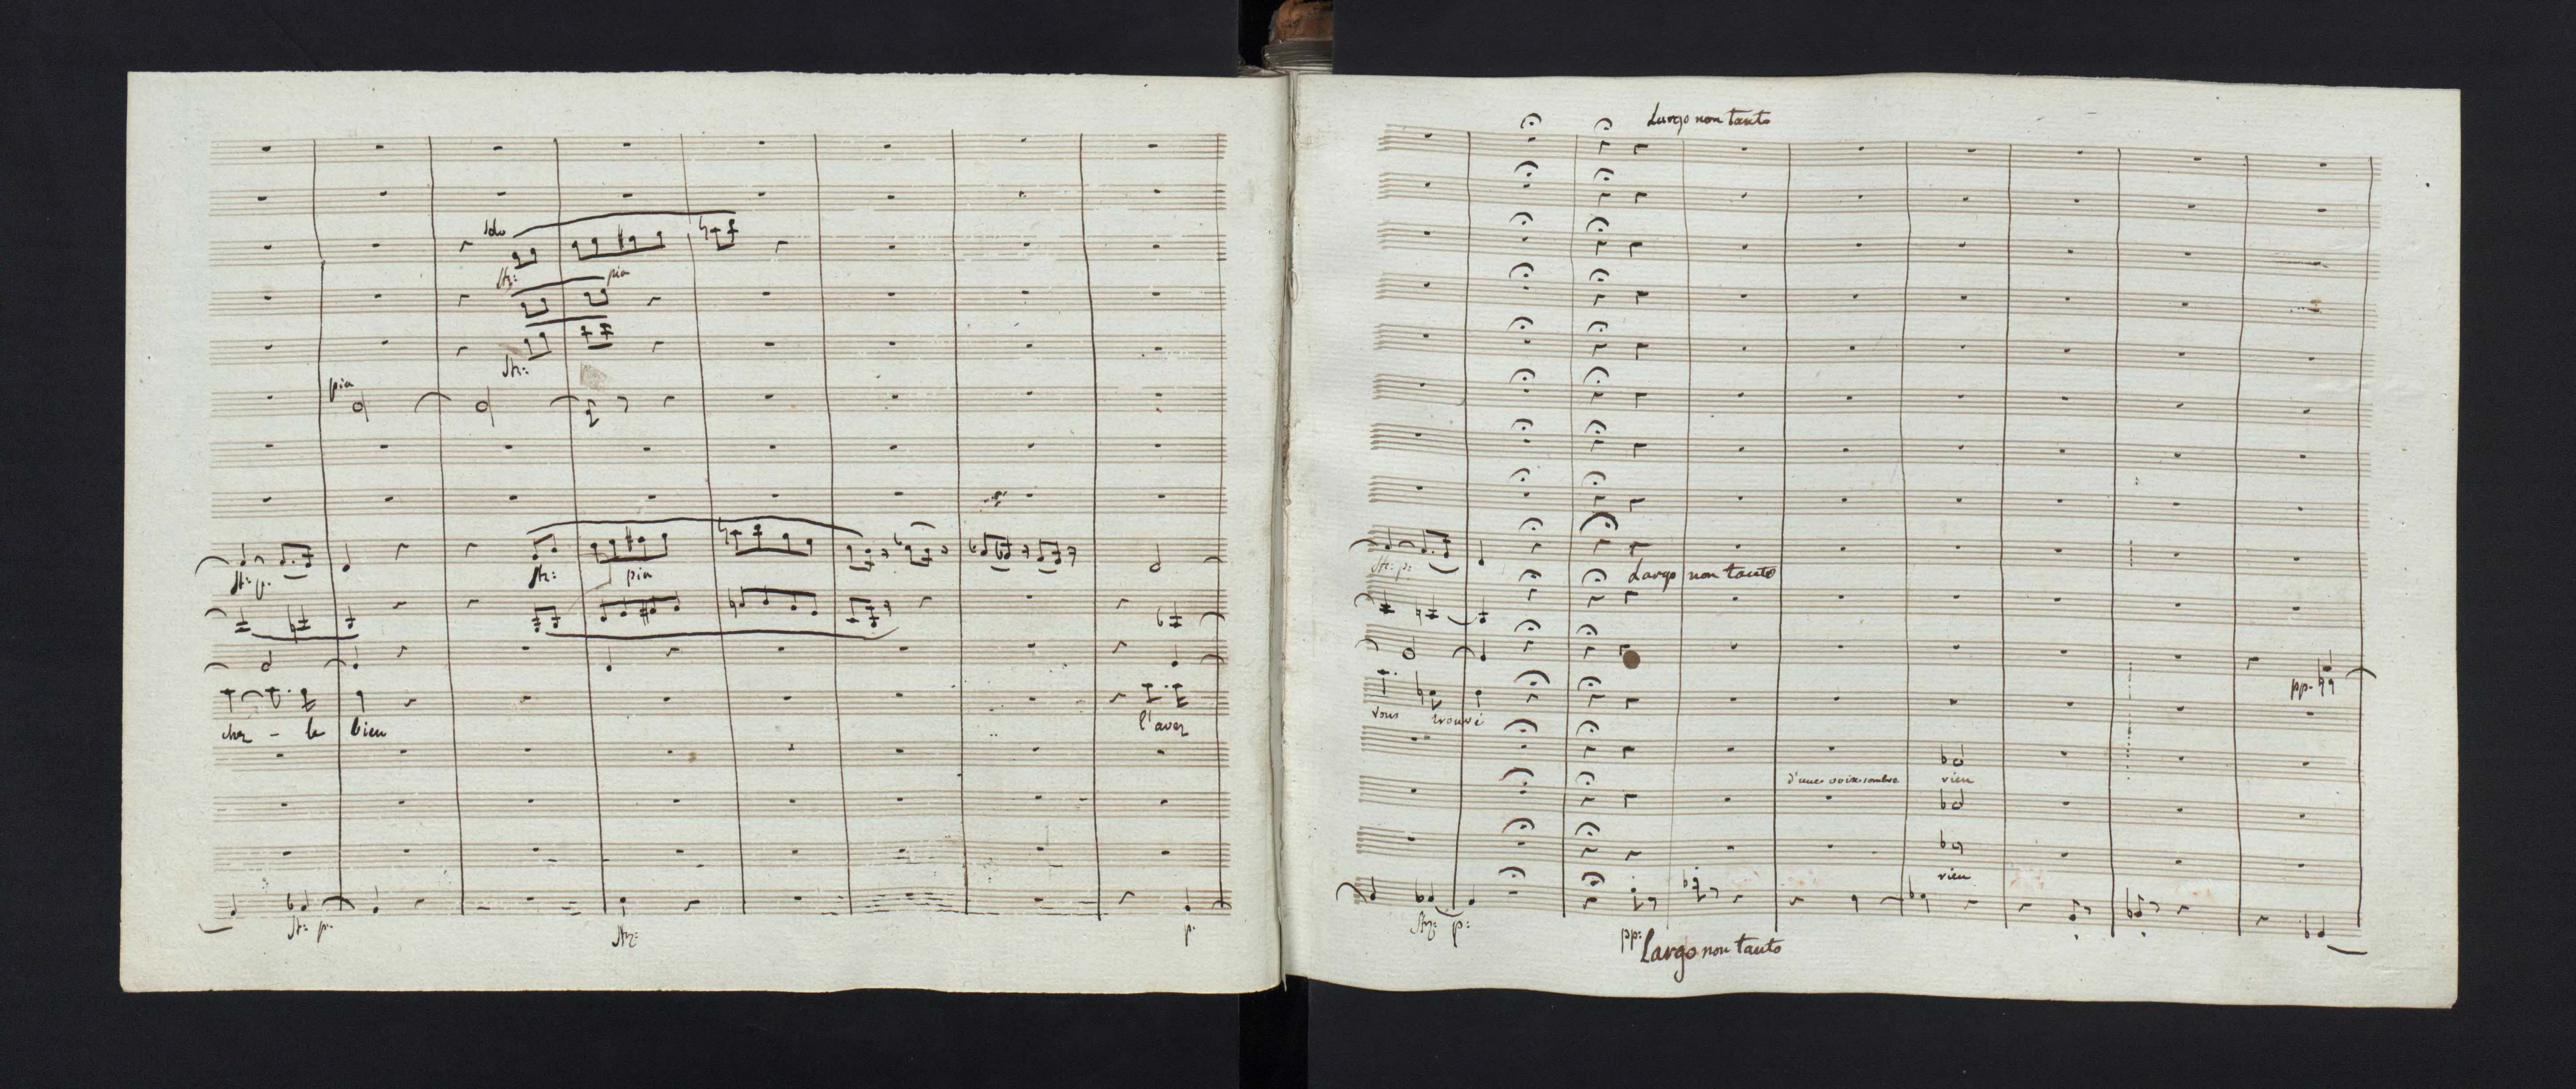 pia
pia
pia
cher - le bien
l'avez
p.
Largo non tanto
Largo non tanto
pp.
vous trouvé
d'une voix sombre
rien
rien
p:
pp:
Largo non tanto